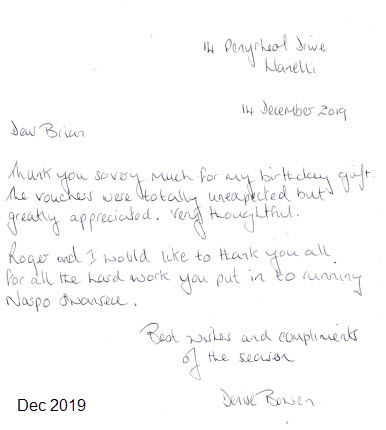 14 Penyrheol Drive
Llanelli
14 December 2019
Dear Brian
Thank you so very much for my birthday gift.
The vouchers were totally unexpected but
greatly appreciated. Very thoughtful.
Roger and I would like to thank you all
for all the hard work you put in to running
Naspo Swansea.
Best wishes and compliments
of the season
Denise Bowen
Dec 2019